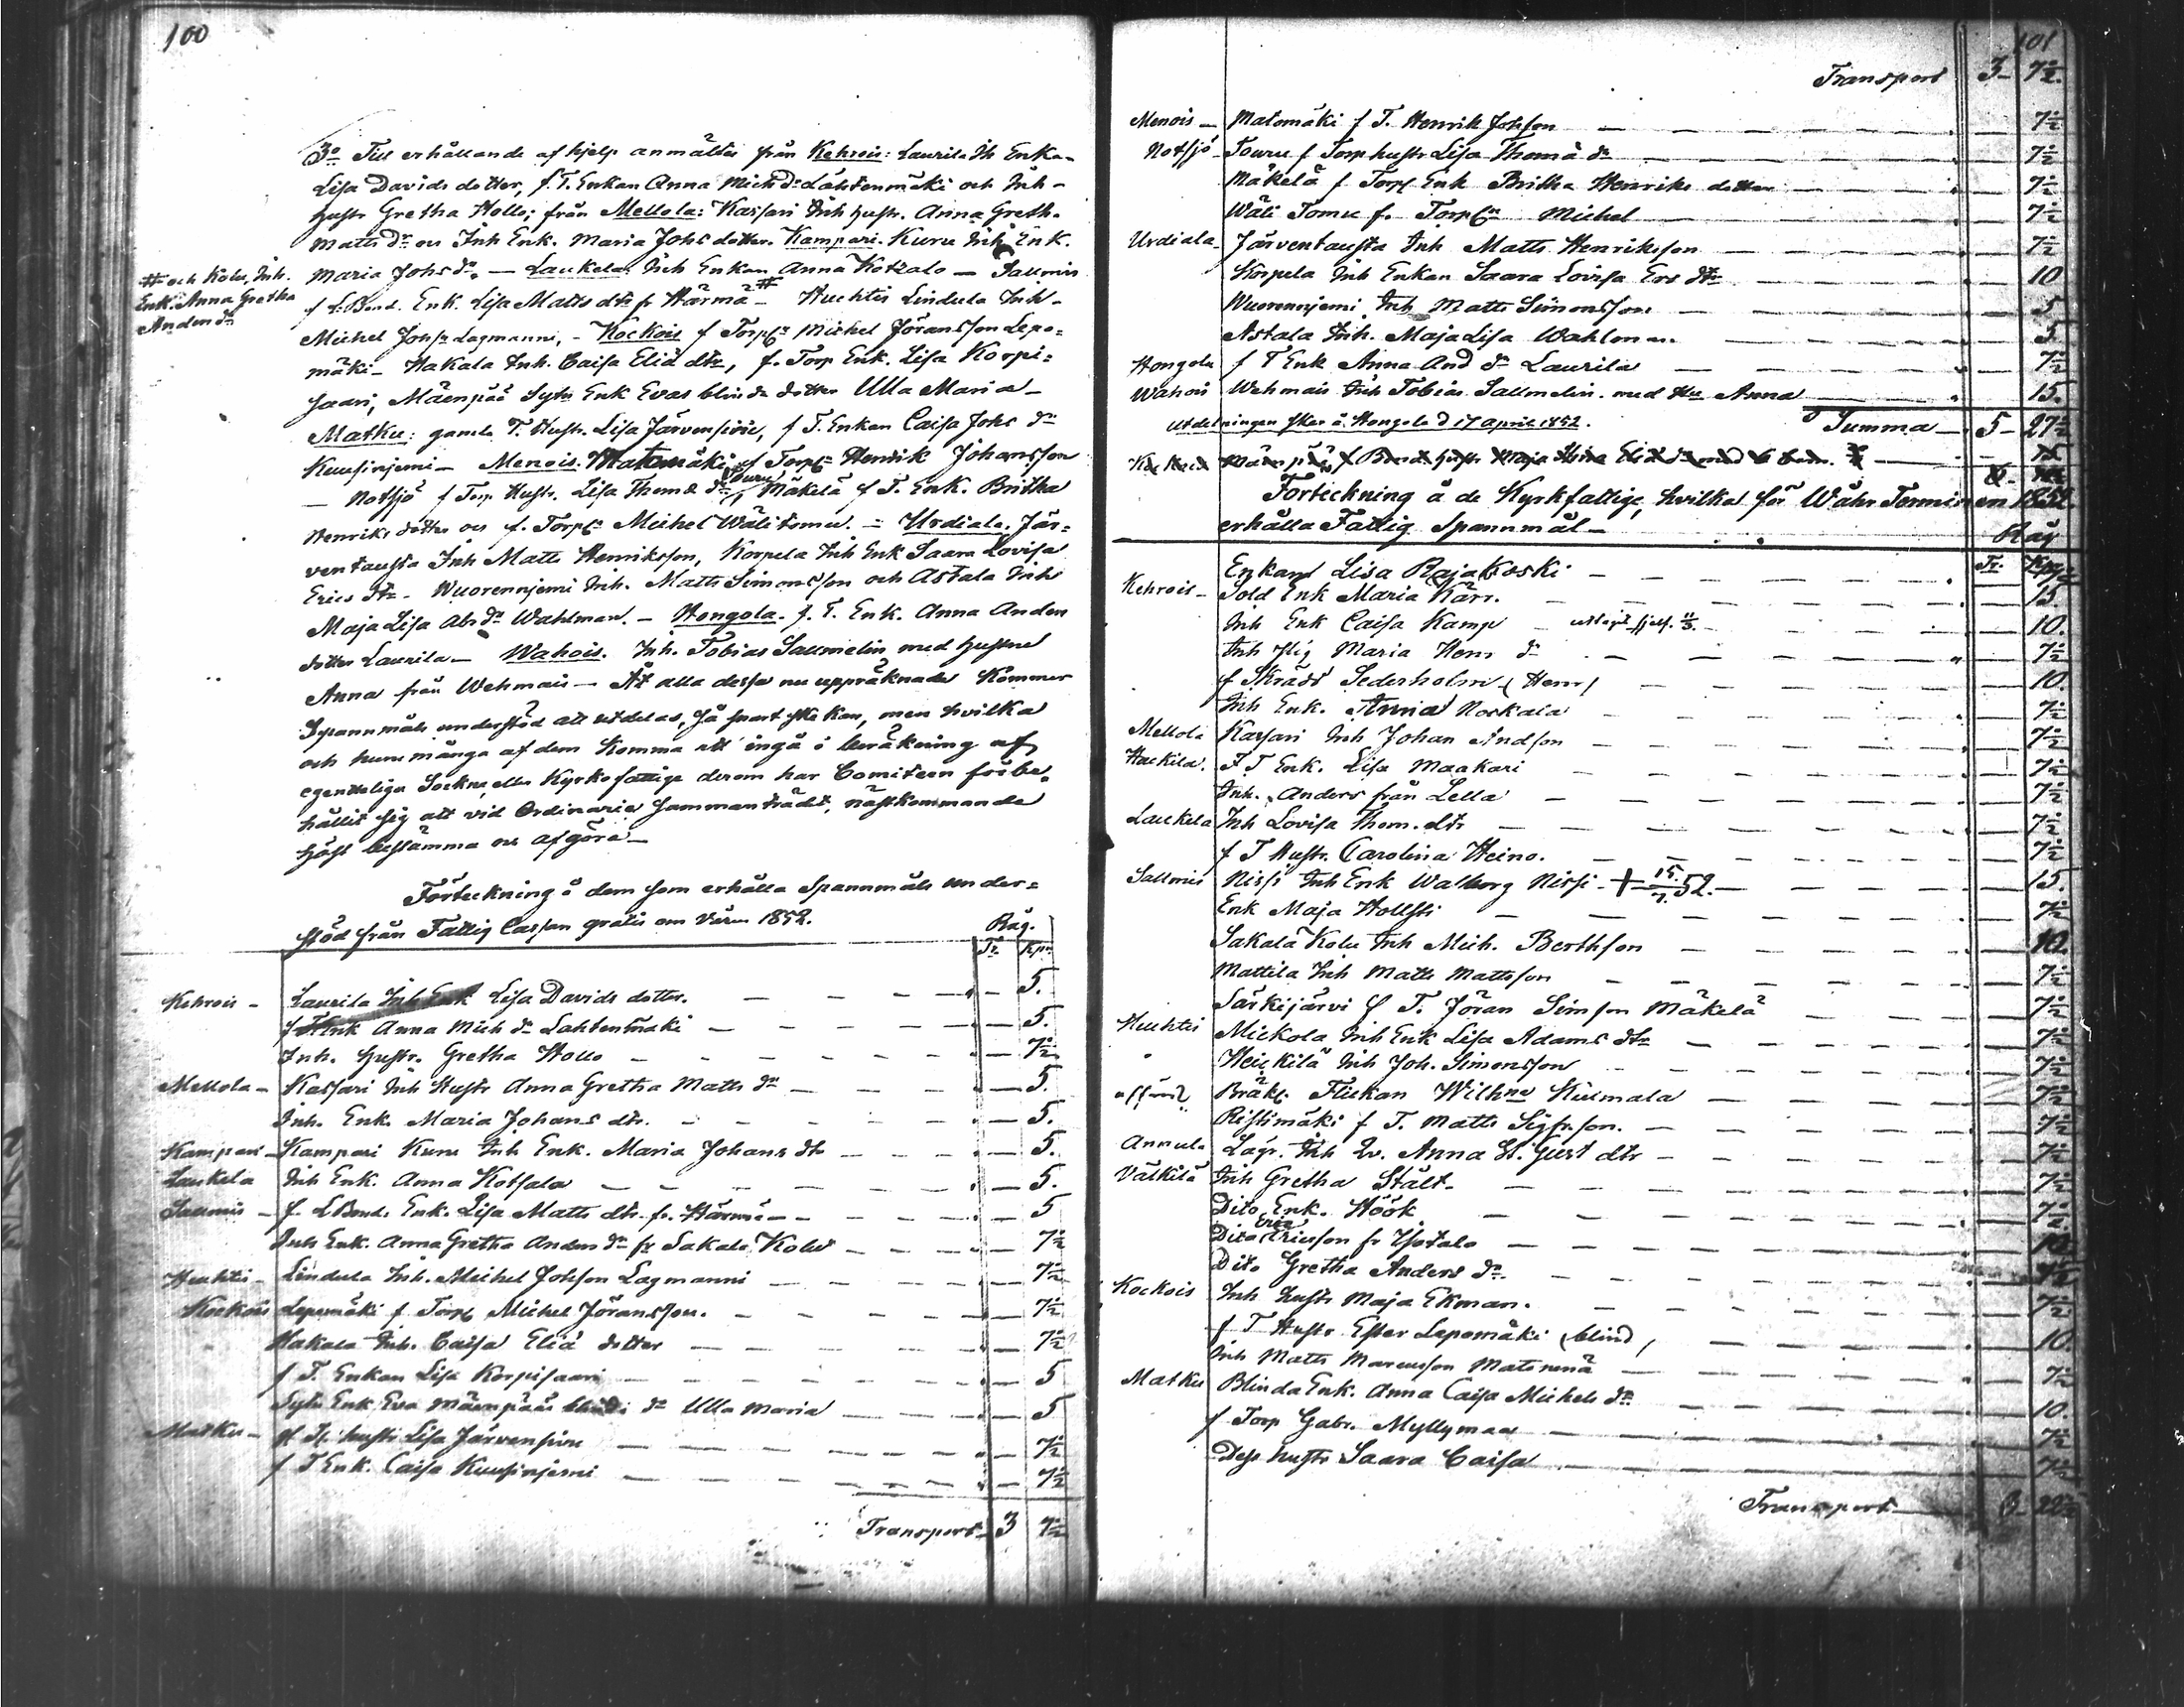 100
3o Till erhållande af hjelp anmältes från Kehrois: Laurila Ih Enka-
Lisa Davids dotter, f. T. Enkan Anna Mich dr Lahtenmäki och Inh-
hustr Gretha Hollo; från Mellola: Kassari Inh hustr. Anna Greth.
Matts dr och Inh Enk. Maria Johs dotter. Kampari. Kuru Inh Enk.
# och Kolu, Inh.
Enk. Anna Gretha
Anders dr
Maria Johs dr. — Laukela: Inh Enkan Anna Kotsalo — Salmis
f L. Bond. Enk. Lisa Matts dtr fr Härmä # Huchtis Lindula Inh-
Michel Johss Lagmanni, - Kockois f Torpr Michel Jöransson Lepo=
mäki - Hakala Inh. Caisa Eliæ dtr, f. Torp Enk. Lisa Korpi=
saari, Mäenpää Sytn Enk Evas blinda dotter Ulla Maria -
Matku: gamla T. Hustr. Lisa Järvensivu, f T. Enkan Caisa Johs dr
Kuusinjemi - Menois. Matomäki f Torpr Henrik Johansson
— Notsjö f Torp Hustr. Lisa Thomæ dr Mäkelä f T. Enk. Britha
Henriks dotter och f. Torpr Michel Wälitomu. = Urdiala. Jär=
ventausta Inh Matts Henriksson, Korpela Inh Enk Saara Lovisa
Erics dtr - Wuorennjemi Inh. Matts Simonsson och Astala Inh
Maja Lisa Abr dr Wahlman. - Hongola. f. T. Enk. Anna Anders
dotter Laurila - Wahois. Inh. Tobias Salmelin med hustru
Anna från Wehmais — Åt alla dessa nu uppräknade kommer
Spannmåls understöd att utdelas, så snart ske kan, men hvilka
och huru många af dem komma att ingå i beräkning af
egenteliga Sockne eller Kyrkofattige derom har Comiteen förbe-
hållit sig att vid Ordinarie sammanträdet nästkommande
höst bestämma och afgöra -
Förteckning å dem som erhålla Spannmåls under=
stöd från Fattig Cassan gratis om våren 1852.
Råg.
Tr. Kpr
Kehrois - Laurila Inh Enk Lisa Davids dotter. — 5.
f T Enk Anna Mich dr Lahtenmäki — 5.
Inh. Hustr. Gretha Hollo — 7½
Mellola - Kassari Inh Hustr Anna Gretha Matts dr — 5.
Inh. Enk. Maria Johans dtr. — 5.
Kampari - Kampari Kuru Inh Enk. Maria Johans dtr — 5.
Laukela Inh Enk. Anna Kotsala — 5.
Salmis - f. L Bond. Enk. Lisa Matts dtr. fr. Härmä — 5
Inh Enk. Anna Gretha Anders dr fr Sakala Kolu — 7½
Huchtis - Lindula Inh. Michel Johsson Lagmanni — 7½
Kockois Lepomäki f Torpr Michel Jöransson. — 7½
Hakala Inh. Caisa Eliæ dotter — 7½
f T. Enkan Lisa Korpisaari — 5
Sytn Enk Eva Mäenpääs blinda dr Ulla Maria — 5
Matku - gl T. hustr Lisa Järvensivu — 7½
f T Enk. Caisa Kuusinjemi — 7½
Transport 3 7½
101
Transport 3 - 7½.
Menois - Matomäki f T. Henrik Johsson — 7½
Notsjö - Touru f Torp hustr Lisa Thomæ dr — 7½
Mäkelä f Torp Enk Britha Henriks dotter — 7½
Wäli Tomu f. Torpr Michel — 7½
Urdiala - Järventausta Inh Matts Henriksson — 7½
Korpela Inh Enkan Saara Lovisa Ers dtr — 10
Wuorennjemi Inh Matts Simonsson — 5
Astala Inh. Maja Lisa Wahlman — 5
Hongola f T Enk Anna And dr Laurila — 7½
Wahois Wehmais Inh Tobias Salmelin med Hu Anna — 15.
Utdelningen sker å Hongola d 17 April 1852. Summa — 5 - 27½
Förteckning å de Kyrkfattige, hvilka för Wåhr Terminen 1852.
erhålla Fattig Spannmål - Råg
Tr. Kpr
Enkan Lisa Rajakoski —
Kehrois - Sold Enk Maria Kärr. — 15.
Inh Enk Caisa Kamp — 10.
Inh Pig Maria Henr dr — 7½
f Skrädd Sederholm (Henr) — 10.
Inh Enk. Anna Korkala — 7½
Mellola Kassari Inh Johan Andson — 7½
Haukila. F T Enk. Lisa Maakari — 7½
Inh. Anders från Lella — 7½
Laukela Inh Lovisa Thom. dtr — 7½
f T Hustr. Carolina Heino. — 7½
Salmis Nissi Inh Enk Walborg Nissi + 15/7 52. — 15.
Enk Maja Hollsti — 7½
Sakala Kolu Inh Mich. Berthson — 10.
Mattila Inh Matts Mattsson — 7½
Särkijärvi f T. Jöran Simson Mäkelä — 7½
Huchtis Mickola Inh Enk Lisa Adams dtr — 7½
Heickilä Inh Joh. Simonsson — 7½
Bräkl. Flickan Wilhna Kiilmala — 7½
Ristimäki f T. Matts Sigfrson. — 7½
Annula Lägr. Inh Qv. Anna St. Gust dtr — 7½
Välkilä Inh Gretha Stält — 7½
Dito Enk. Höök — 7½
Dito Eric Ericsson fr Ylistalo — 10
Dito Gretha Anders dr. — 7½
Kockois Inh hustr Maja Ekman. — 7½
f T Hustr Ester Lepomäki (blind) — 10.
Inh Matts Marcusson Matinmä — 7½
Matku Blinda Enk. Anna Caisa Michels dr — 10.
f Torp Gabr. Myllymaa — 7½
Dess hustr Saara Caisa — 7½
Transport